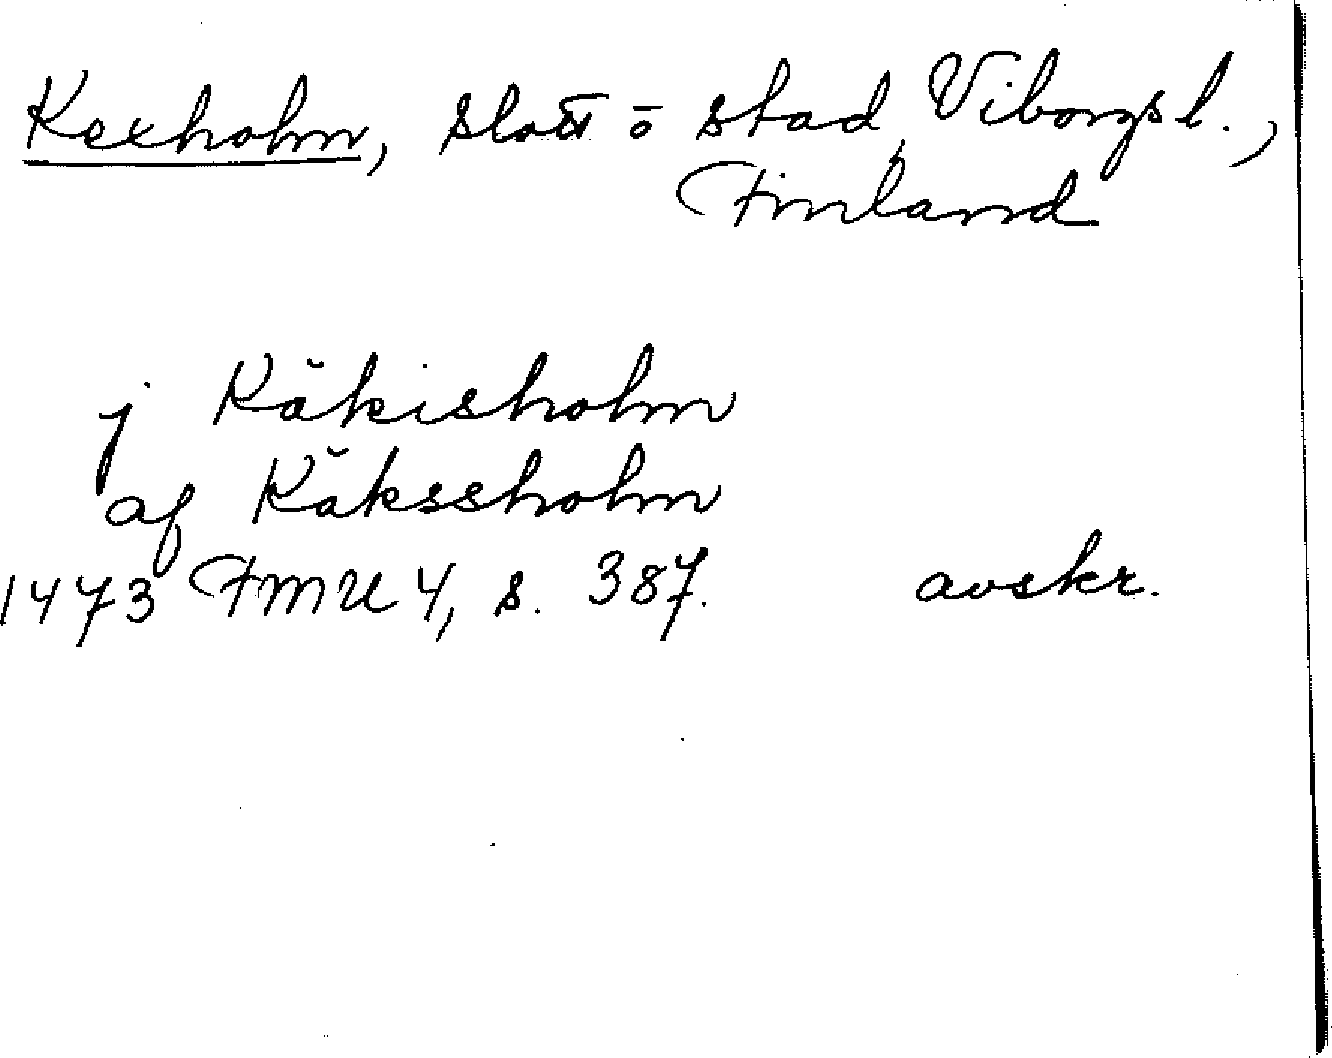 Kexholm, slott o stad, Viborgs l.,
Finland
j Käkisholm
af Käkssholm
1473 FMU 4, s. 387. avskr.